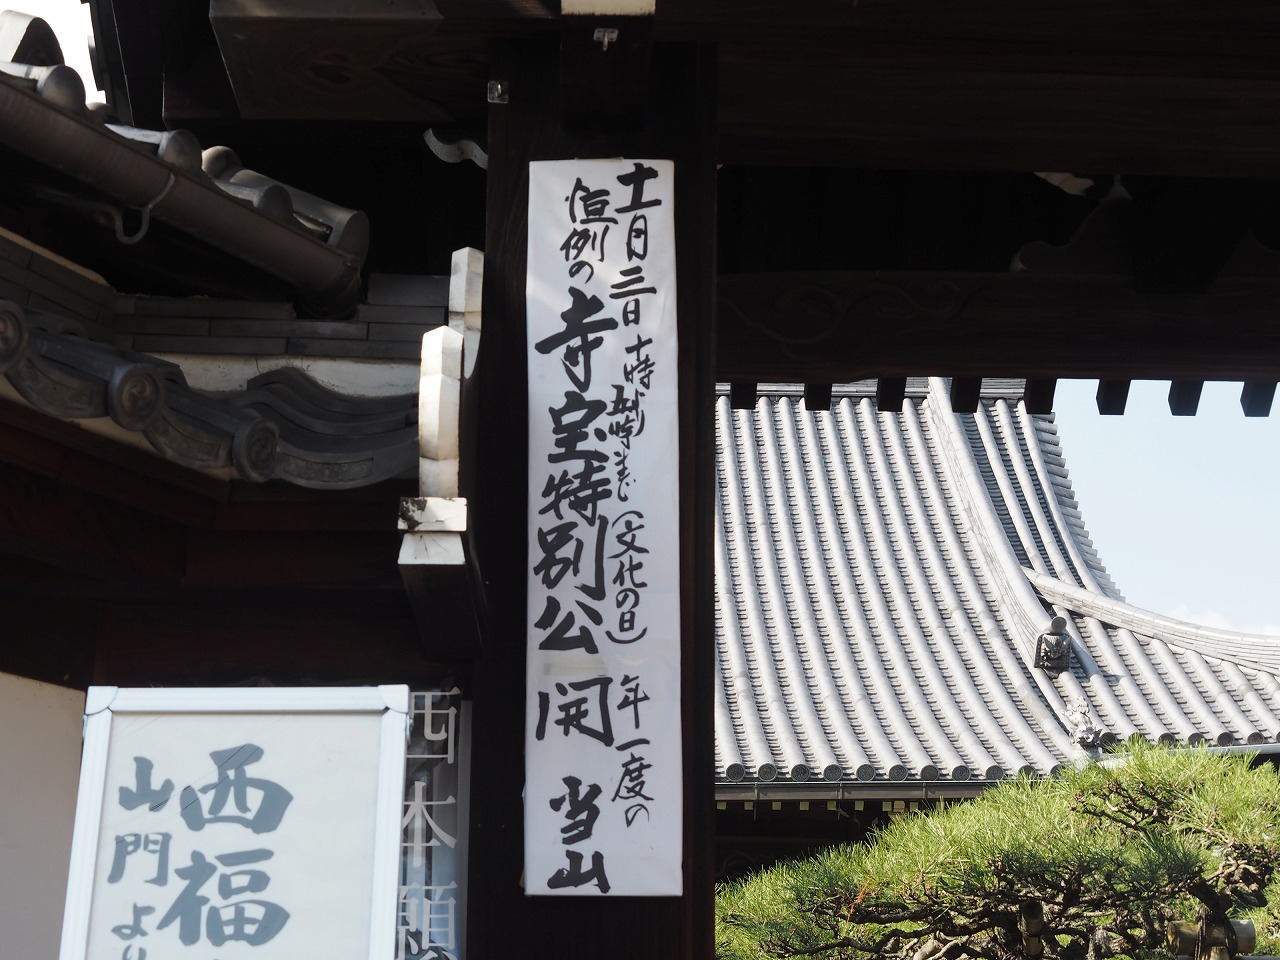 十一月三日 十時より五時まで (文化の日) 一年一度の
恒例の寺宝特別公開 当山
西福
山門より
西本願